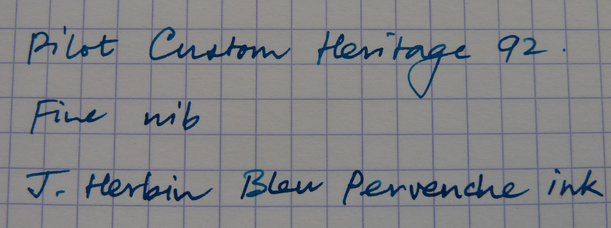 Pilot Custom Heritage 92.
Fine nib
J. Herbin Bleu Pervenche ink